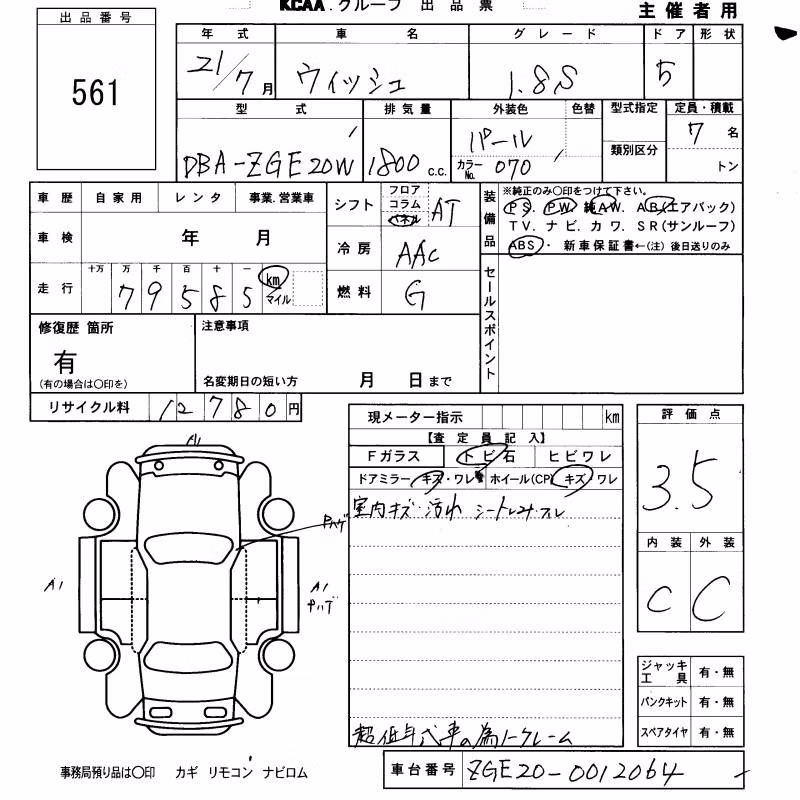 KCAA.グループ 出品票 主催者用
出品番号
561
年式 車名 グレード ドア 形状
21/7月 ウィッシュ 1.8S 5
型式 排気量 外装色 色替 型式指定 定員・積載
DBA-ZGE20W 1800c.c. パール 7名
カラーNo. 070 類別区分 トン
車歴 自家用 レンタ 事業.営業車
シフト フロア コラム パネル AT
装備品 ※純正のみ〇印をつけて下さい。
PS. PW. 純AW. AB(エアバック)
TV. ナビ. カワ. SR(サンルーフ)
ABS・ 新車保証書←(注)後日送りのみ
車検 年 月
冷房 AAC
走行 十万 万 千 百 十 一
79585 km マイル
燃料 G
セールスポイント
修復歴 箇所
有
(有の場合は〇印を)
注意事項
名変期日の短い方 月 日まで
リサイクル料 12780円
現メーター指示 km
【査定員記入】
Fガラス トビ石 ヒビワレ
ドアミラー キズ・ワレ ホイール(CP) キズ/ワレ
室内キズ・汚れ シートレみ・スレ
評価点
3.5
内装 外装
C C
A1
Pハゲ
A1
A1
Pハゲ
超低年式車の為ノークレーム
ジャッキ工具 有・無
パンクキット 有・無
スペアタイヤ 有・無
事務局預り品は〇印 カギ リモコン ナビロム
車台番号 ZGE20-0012064